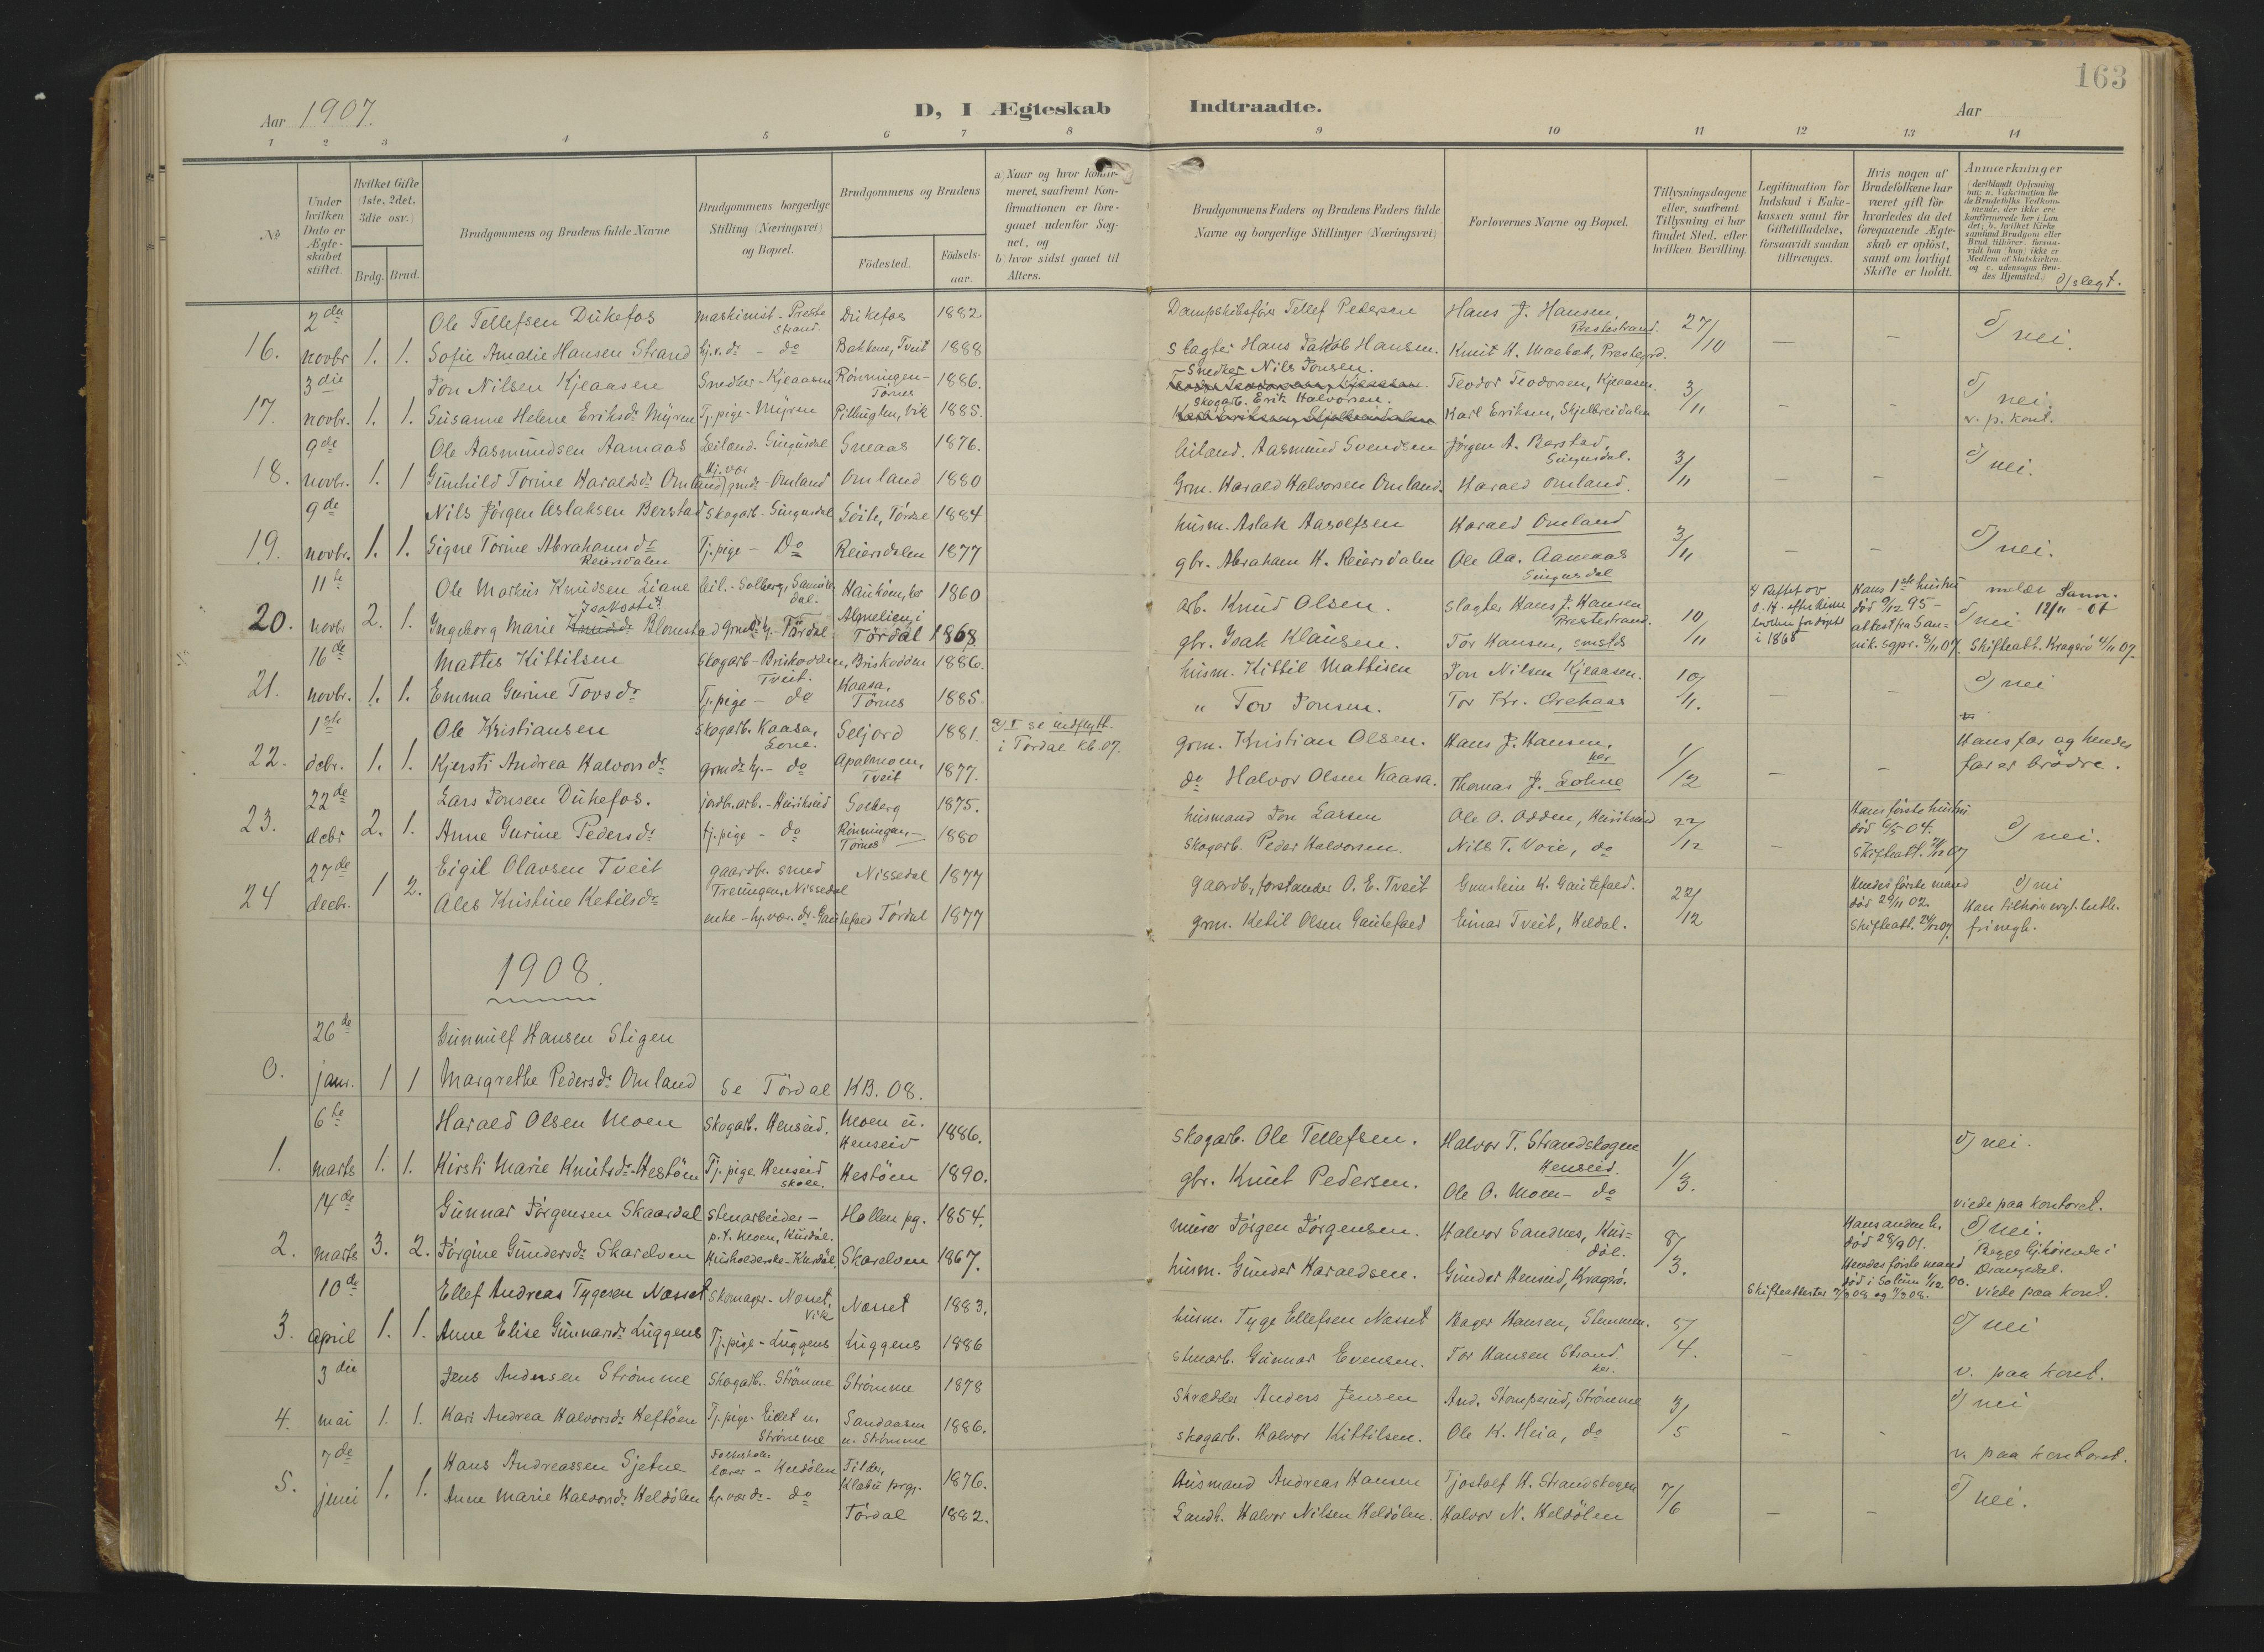 163
Aar 1907.
D, I Ægteskab
Indtraadte.
Aar
1 2 3 4 5 6 7 8 9 10 11 12 13 14
No
Under hvilken Dato er Ægteskabet stiftet.
Hvilket Gifte (1ste, 2det, 3die osv.)
Brdg. Brud.
Brudgommens og Brudens fulde Navne
Brudgommens borgerlige Stilling (Næringsvei) og Bopæl.
Brudgommens og Brudens
Fødested.
Fødselsaar.
a) Naar og hvor konfirmeret, saafremt Konfirmationen er foregaaet udenfor Sognet, og
b) hvor sidst gaaet til Alters.
Brudgommens Faders og Brudens Faders fulde Navne og borgerlige Stillinger (Næringsvei)
Forlovernes Navne og Bopæl.
Tillysningsdagene eller, saafremt Tillysning ei har fundet Sted, efter hvilken Bevilling.
Legitimation for Indskud i Enkekassen samt for Giftetilladelse, forsaavidt saadan tiltrænges.
Hvis nogen af Brudefolkene har været gift før hvorledes da det foregaaende Ægteskab er opløst, samt om lovligt Skifte er holdt.
Anmærkninger
d) slegt.
16. 2den novbr 1. 1.
Ole Tellefsen Dukefos maskinist - Prestestrand Dukefos 1882 Dampskibsfører Tellef Pedersen Hans J. Hansen, Prestestrand. 27/10 — — d) nei.
Sofie Amalie Hansen Strand hj.v.dr - do Bakkene, Tveit 1888 slagter Hans Jakob Hansen. Knut H. Maabøk, Prestegrd.
17. 3die novbr. 1. 1.
Jon Nilsen Kjeaasen Snedker - Kjeaasen Rönningen - Törnes 1886. Snedker Nils Jonsen. Teodor Teodorsen, Kjeaasen. 3/11 - - d) nei. v. p. kont.
Susanne Helene Eriksdr Myren Tj.pige - Myren 1885. skogarb. Erik Halvorsen. Karl Eriksen, Skjelbreidalen
18. 9de novbr. 1. 1
Ole Aasmundsen Aamaas Leiland. Gingusdal Gneaas 1876. leiland. Aasmund Svendsen Jørgen A. Berstad, Gingusdal. 3/11 - - d) nei.
Gunhild Torine Haraldsdr Omland hj.vær gmds - Omland Omland 1880 Grm. Harald Halvorsen Omland. Harald Omland.
19. 9de novbr. 1. 1.
Nils Jörgen Aslaksen Berstad skogarb - Gingusdal Göite, Tördal 1884 husm. Aslak Aasolfsen Harald Omland 3/11 - - d) nei.
Signe Torine Abrahamsdr Reiersdalen Tj.pige - Do Reiersdalen 1877 gbr. Abraham H. Reiersdalen Ole Aa. Aamaas Gingusdal
20. 11te novbr 2. 1.
Ole Markus Knudsen Liane leil. - Solberg, Sannikedal. 1860 arb. Knud Olsen. slagter Hans J. Hansen Prestestrand. 10/11 i 1868 Hans 1ste hustru død 9/12 95 - attest fra Sannik. sgpr. 8/11 07. d) nei Skifteatt. Kragerö 4/11 07.
Isaksdtr Ingeborg Marie Blomstad Grmdr hj. - Tördal i Tördal 1868 gbr. Isak Klausen. Tor Hansen, smsts
21. 16de novbr. 1. 1.
Mattes Kittilsen Skogarb - Briskodden, Tveit. Briskodden 1886. husm. Kittil Mattisen Jon Nilsen Kjeaasen. 10/11. - - d) nei
Emma Gurine Tovsdr Tj.pige - do Kaasa, Törnes 1885. " Tov Jonsen. Tor Kr. Orehaas
22. 1ste debr. 1. 1.
Ole Kristiansen skogarb. Kaasa, Seljord 1881. a) I se indflytt. i Tördal Kb. 07. grm. Kristian Olsen. Hans J. Hansen. her 1/12 - - Hans far og hendes far er brödre.
Kjersti Andrea Halvorsdr grmdr hj. - do Apalmoen, Tveit 1877. do Halvor Olsen Kaasa. Thomas J. Lohne
23. 22de debr 2. 1.
Lars Jonsen Dukefos. jordbr.arb. - Henrikseid Solberg 1875. husmand Jon Larsen Ole O. Odden, Henrikseid 22/12 - Hans første hustru død 6/5 04. Skifteatt. 07 d) nei.
Anne Gurine Pedersdr tj.pige - do Rönningen, Törnes 1880 Skogarb. Peder Halvorsen. Nils T. Voie, do
24 27de decbr. 1 2.
Eigil Olavsen Tveit gaardbr. smed Treungen, Nissedal Nissedal 1877 gaardb., forstander O. E. Tveit Gunstein K. Gautefaed. 22/12 Hendes første mand død 29/11 02. Skifteatt. 24/12 07. d) nei Han tilhører evgl. luth. frimegh.
Ales Kristine Ketilsdr enke - hj.vær. dr. Gautefaed Tördal 1877 grm. Ketil Olsen Gautefaed Einar Tveit, Heldal.
1908.
0. 26de janr. 1 1
Gunnulf Hansen Stigen
Margrethe Pedersdr Omland Se Tördal KB. 08.
1. 6te marts 1. 1.
Harald Olsen Moen skogarb. Henseid. Moen u. Henseid 1886. Skogarb. Ole Tellefsen. Halvor T. Strandskogen Henseid. 1/3. d) nei.
Kirsti Marie Knutsdr Hestöen Tj.pige. Henseid skole. Hestöen 1890. gbr. Knut Pedersen. Ole O. Moen - do
2. 14de marts 3. 2.
Gunnar Jørgensen Skaardal stenarbeider - p.t. Moen, Kurdöl. Hollen pg. 1854. murer Jørgen Jørgensen. Halvor Sandnes, Kurdöl. 8/3. Hans anden h. død 28/9 01. viede paa kontoret. d) nei. Begge hjhørende i Drangedal.
Jørgine Gundersdr Skarelven Husholderske - Kurdöl, Skarelven 1867. husm. Gunder Haraldsen. Gunder Henseid, Kragerö. Hendes første mand død i Solum 1/12 00. Skifteattester
3. 10de april 1. 1.
Ellef Andreas Tygesen Næsset Skomager - Næsset, Vik Næsset 1883. husm. Tyge Ellefsen Næsset Roger Hansen, Stemmen. 5/4. - - viede paa kont. d) nei
Anne Elise Gunnarsdr Luggens Tj.pige - Luggens Luggens 1886 stenarb. Gunnar Evensen. Tor Hansen Strand her.
4. 3die mai 1. 1.
Jens Andersen Strömme Skogarb. Strömme Strömme 1878 Skrædder Anders Jensen And. Stomperud, Strömme 3/5 - - v. paa kont. d) nei
Kari Andrea Halvorsdr Heftöen Tj.pige - Eidet u. Strömme Sandaasen u. Strömme 1886. skogarb. Halvor Kittilsen. Ole K. Heia, do
5. 7de juni 1. 1.
Hans Andreassen Gjetne Folkeskolelærer - Heldölen Tilder, Klæbu prgj. 1876. Husmand Andreas Hansen Tjostolf H. Strandskogen 7/6 - - v. paa kontoret. d) nei.
Anne Marie Halvorsdr Heldölen hj.værdr - do Tördal 1882. Landh. Halvor Nilsen Heldölen. Halvor N. Heldölen